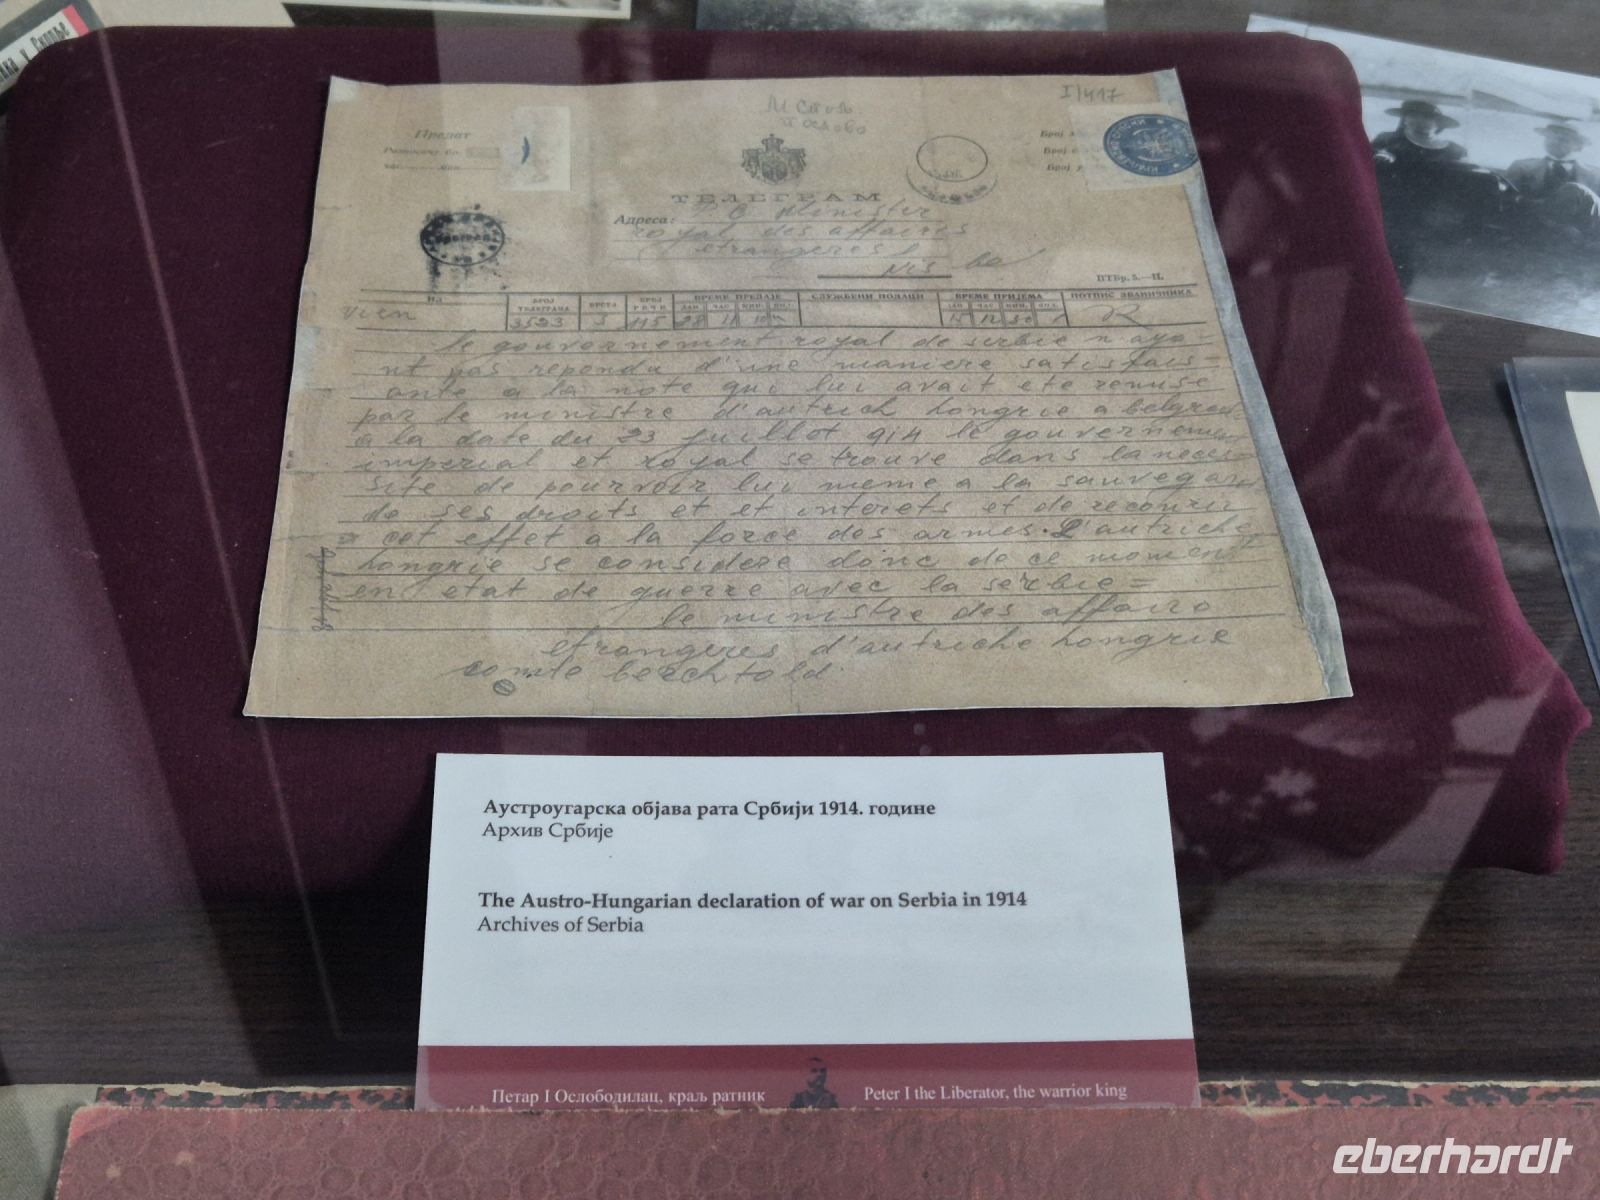 у Скопље
I/417
Предат
ТЕЛЕГРАМ
Адреса: Minister
royal des affaires
etrangeres
Nis
ПТБр. 5.—П.
На
БРОЈ ТЕЛЕГРАМА
ВРСТА
БРОЈ РЕЧИ
ВРЕМЕ ПРЕДАЈЕ
СЛУЖБЕНИ ПОДАЦИ
ВРЕМЕ ПРИЈЕМА
ПОТПИС ЗВАНИЧНИКА
3523 3 115 28
le gouvernement royal de serbie n aya
nt pas repondu d'une maniere satisfais
ante a la note qui lui avait ete remise
par le ministre d'autrich hongrie a belgrade
a la date du 23 juillot 914 le gouvernement
imperial et royal se trouve dans la neces
site de pourvoir lui meme a la sauvegar
de ses droits et et interets et de recourir
a cet effet a la force des armes. L'autriche
hongrie se considere donc de ce moment
en etat de guerre avec la serbie =
le ministre des affairo
etrangeres d'autriche hongrie
comte berchtold
Аустроугарска објава рата Србији 1914. године
Архив Србије
The Austro-Hungarian declaration of war on Serbia in 1914
Archives of Serbia
Петар I Ослободилац, краљ ратник
Peter I the Liberator, the warrior king
eberhardt